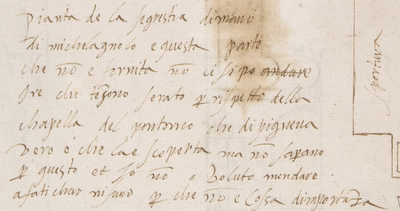 Pianta de la segrestia di mano
di michelagnolo e questa parte
che nō e fornita nō ci si po andare
che tēgono serato p rispetto della
chapella del pontormo che dipigneva
Vero e che la e scoperta ma nō sapano
p questo et io nō o Voluto mandare
a fatichar nisuno p che nō e Cossa dimportāza
portura